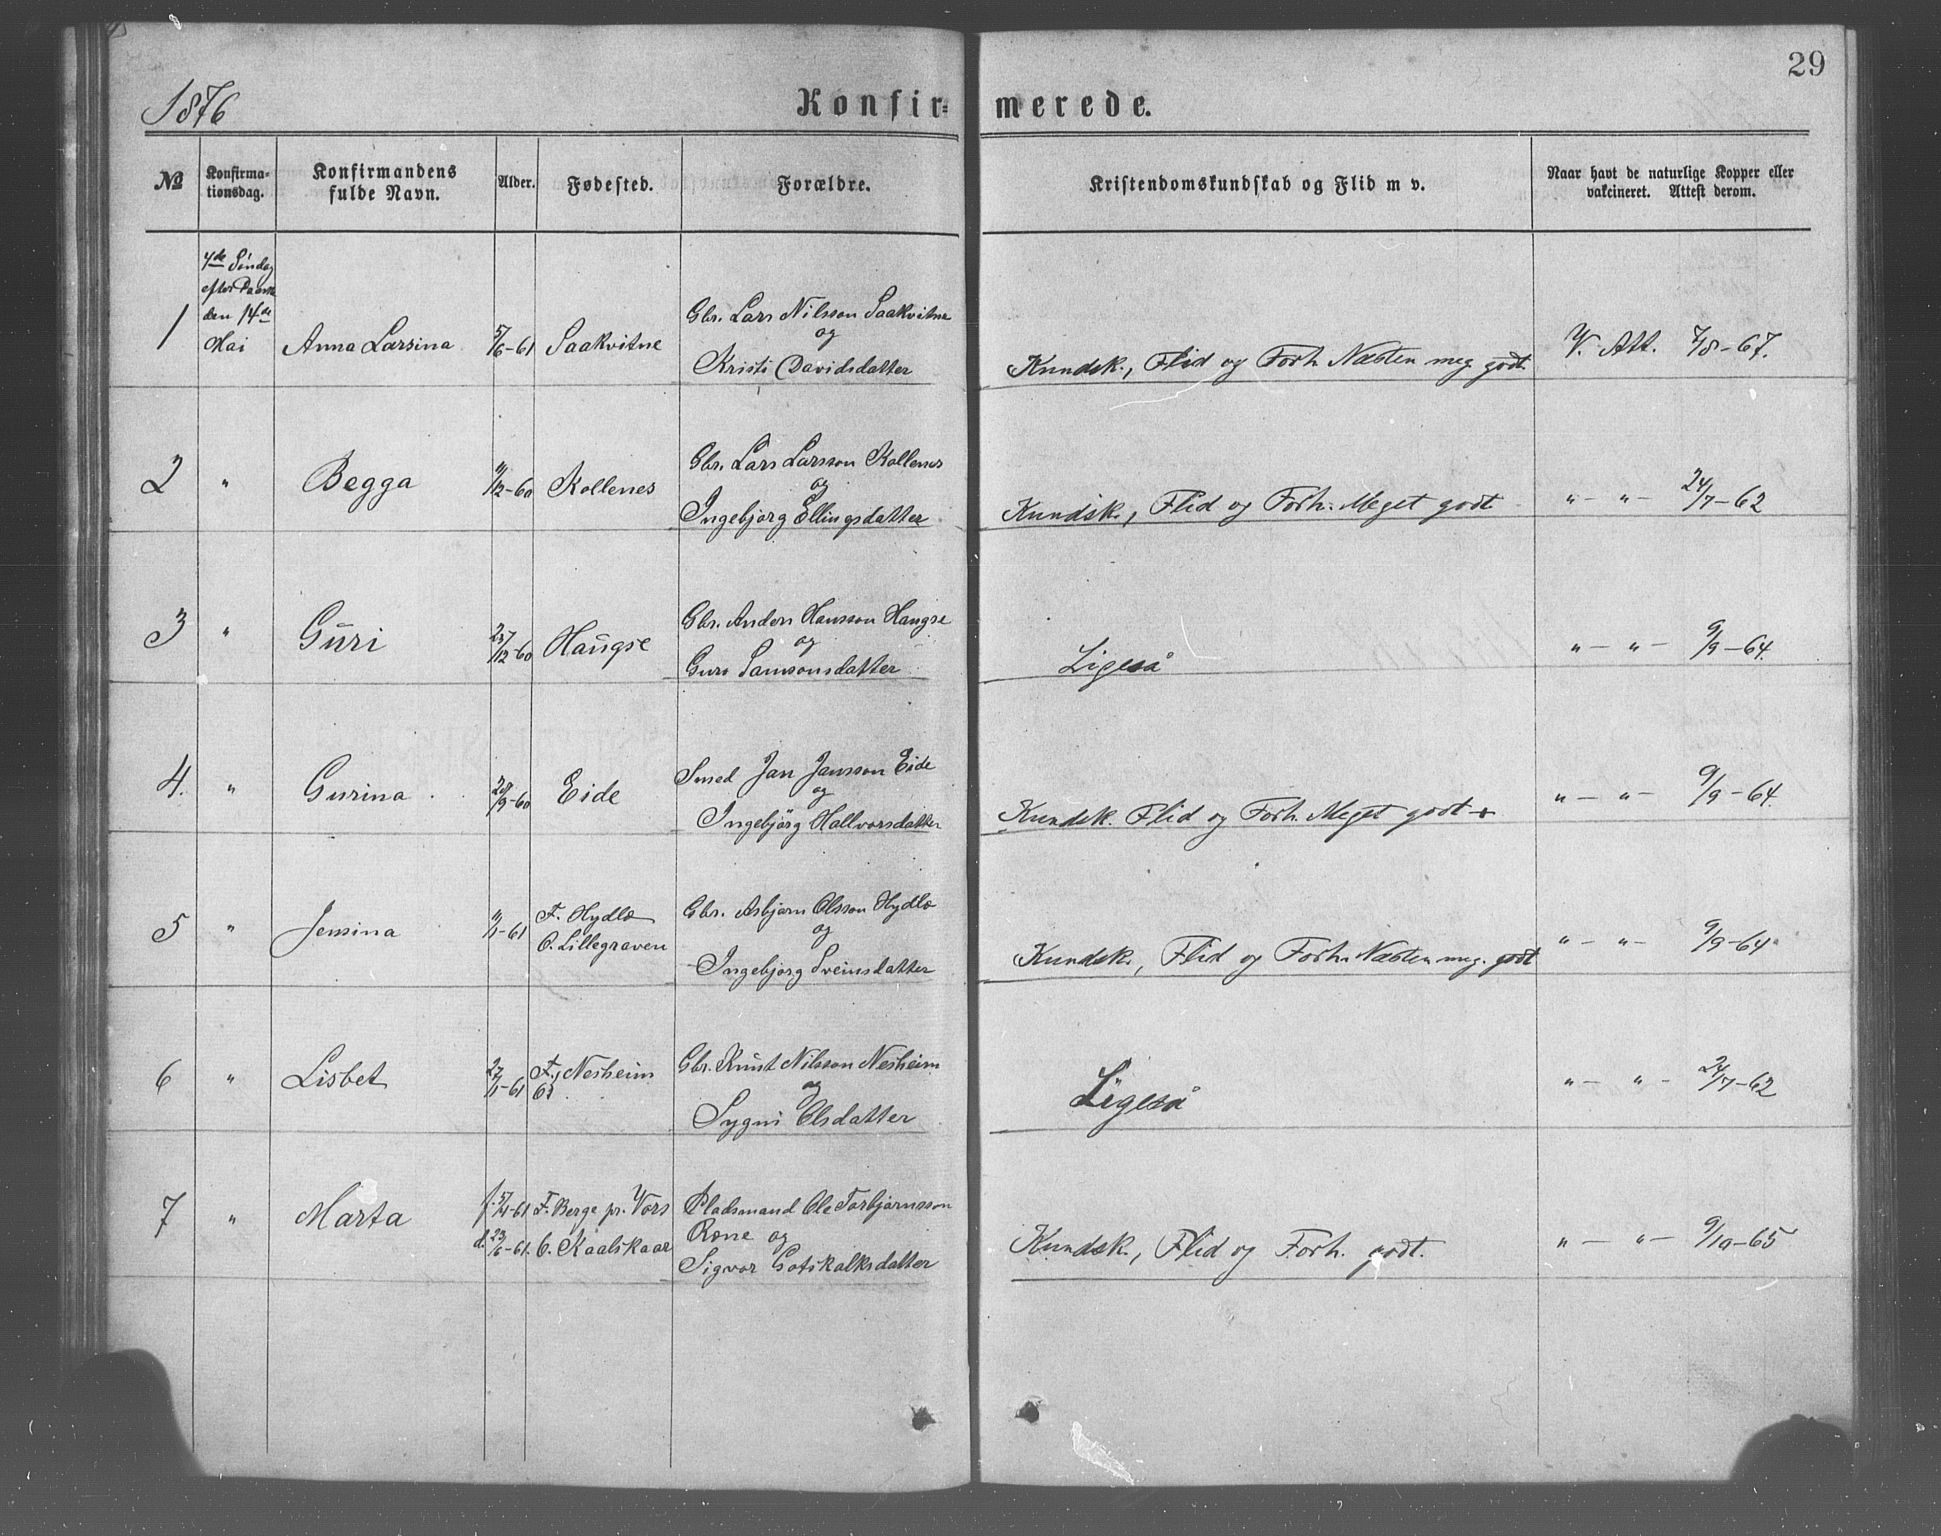 29
1876
Konfir-
merede.
№
Konfirma-
tionsdag.
Konfirmandens
fulde Navn.
Alder.
Fødested.
Forældre.
Kristendomskundskab og Flid m v.
Naar havt de naturlige Kopper eller
vakcineret. Attest derom.
4de Søndag
efter Paaske
den 14de
Mai
1 Anna Larsina 5/6-61 Saakvitne
Gbr. Lars Nilsson Saakvitne
og
Kristi Davidsdatter
Kundsk., Flid og Forh. Næsten meg. godt. V. Att. 7/8-67.
2 " Begga 11/12-60 Kollenes
Gbr. Lars Larsson Kollenes
og
Ingebjorg Ellingsdatter
Kundsk., Flid og Forh. Meget godt " — " — 24/7-62
3 " Guri 27/12-60 Haugse
Gbr. Anders Hansson Haugse
og
Guro Samsonsdatter
Ligeså " — " — 9/9-64.
4. " Gurina 28/9-60 Eide
Smed Jan Jansson Eide
og
Ingebjörg Hallvorsdatter
Kundsk. Flid og Forh. Meget godt + " — " — 9/9-64.
5 " Jensina 11/1-61
F. Hydle
O. Lillegraven
Gbr. Asbjørn Olsson Hydle
og
Ingebjörg Sveinsdatter
Kundsk., Flid og Forh. Næsten meg. godt " — " — 9/9-64
6 " Lisbet 27/1-61
F. Nesheim
O.
Gbr. Knut Nilsson Nesheim
og
Sygni Olsdatter
Ligeså " — " — 24/7-62
7 " Marta
f. 5/4-61 F. Berge pr. Vors
d. 23/6-61. O. Kaalskaar
Pladsmand Ole Torbjørnsson
Rone og
Sigvor Gotskalksdatter
Kundsk., Flid og Forh. godt. " — " — 9/10-65